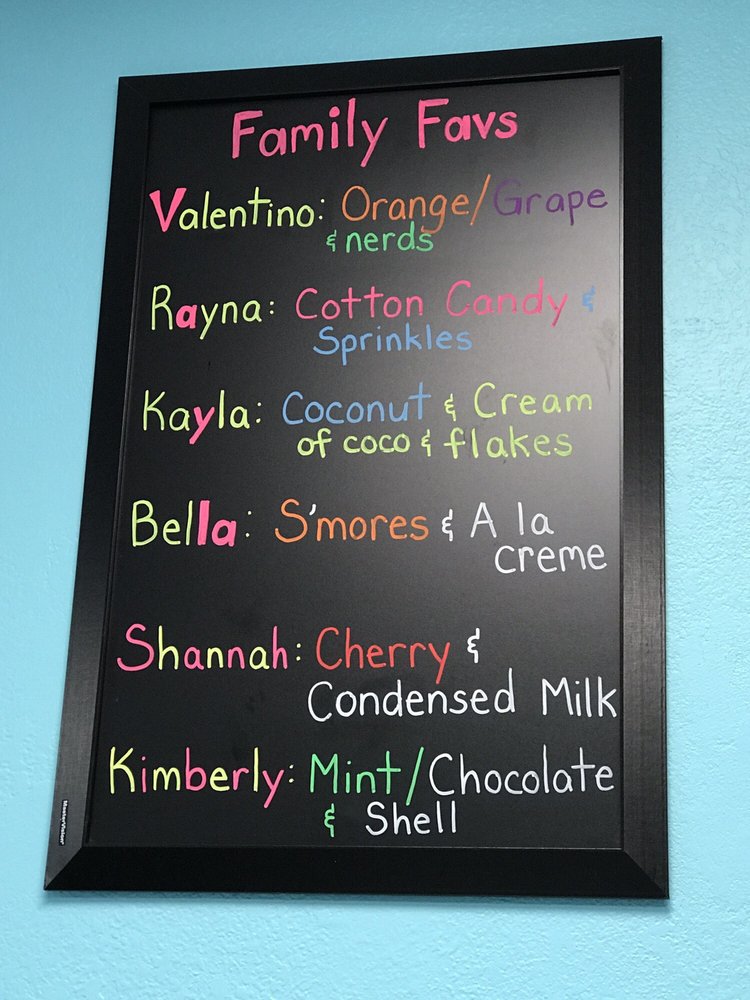 Family Favs
Valentino: Orange/Grape
& nerds
Rayna: Cotton Candy &
Sprinkles
Kayla: Coconut & Cream
of coco & flakes
Bella: S'mores & A la
creme
Shannah: Cherry &
Condensed Milk
Kimberly: Mint/Chocolate
& Shell
MasterVision